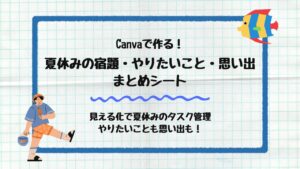 Canvaで作る！
夏休みの宿題・やりたいこと・思い出
まとめシート
見える化で夏休みのタスク管理
やりたいことも思い出も！